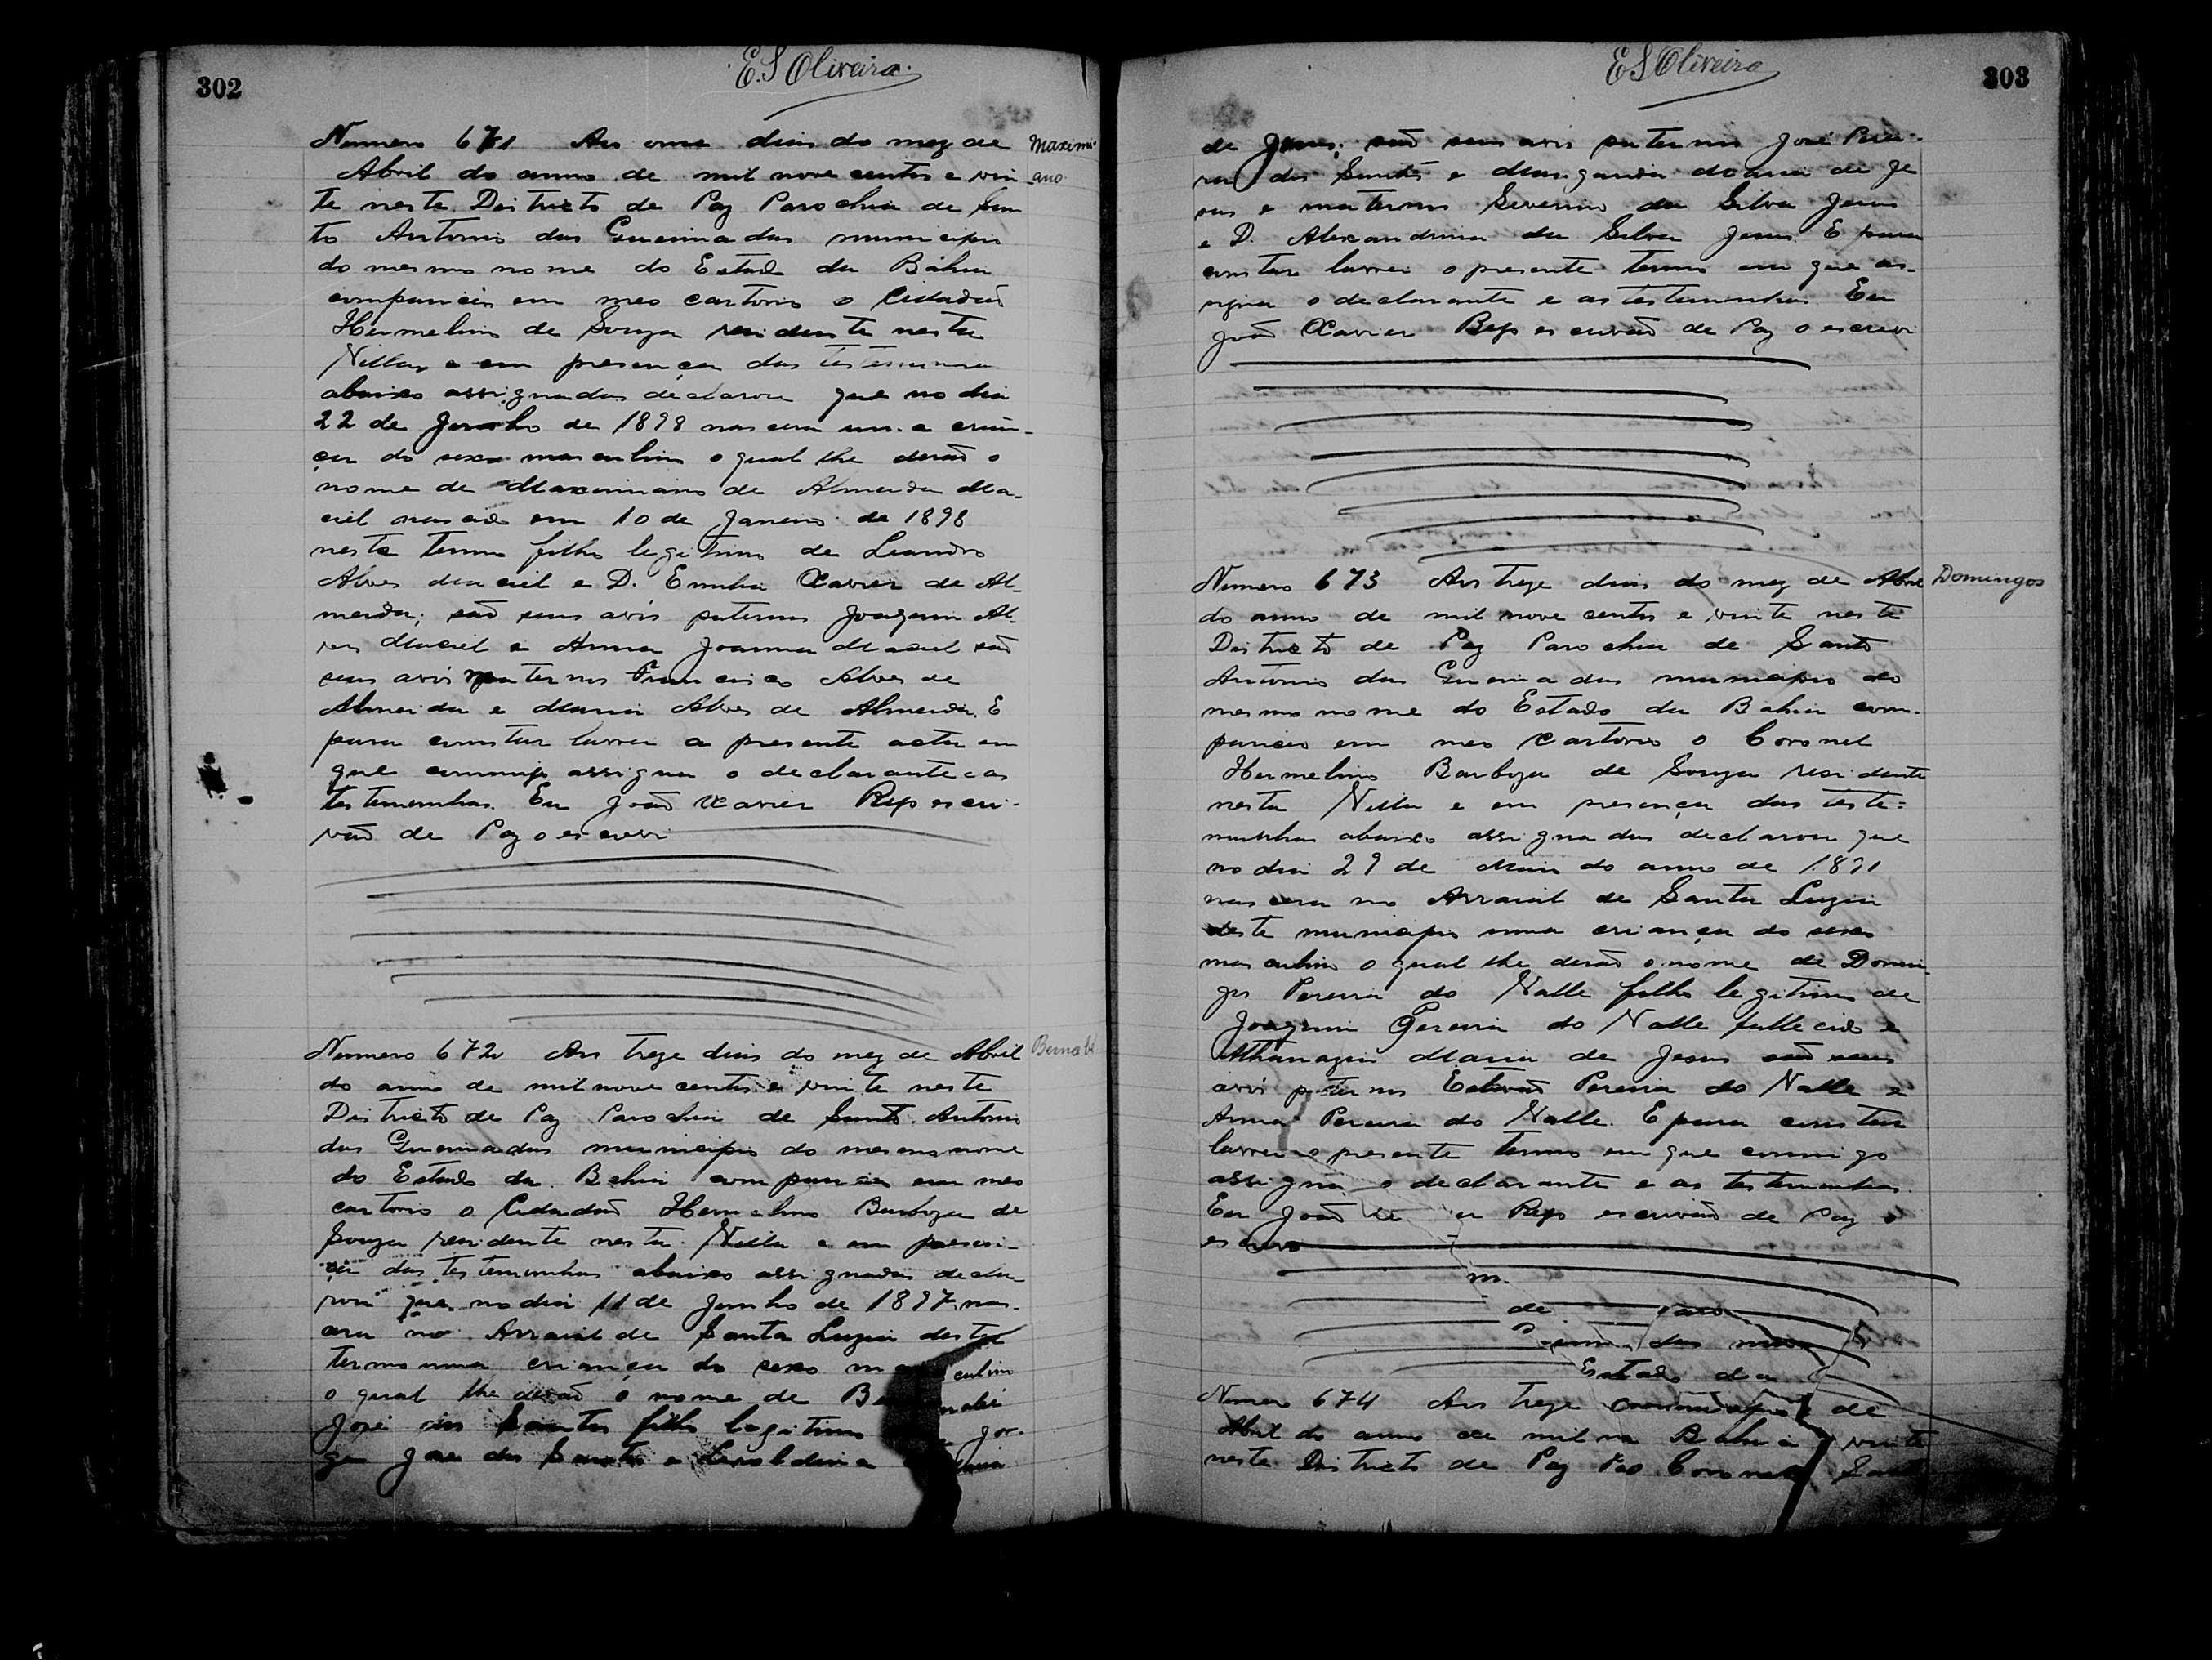 302
E. S Oliveira
Numero 671 Aos onze dias do mez de
Maximi
Abril do anno de mil nove centos e vin
ano
te neste Districto de Paz Parochia de San
to Antonio das Queimadas municipio
do mesmo nome do Estado da Bahia
compareceu em meo cartorio o Cidadão
Hermelino de Souza residente nesta
Villa, e em presença das testemunha
abaixo assignadas declarou que no dia
22 de Junho de 1898 nascera uma crian-
ça do sexo masculino o qual lhe derão o
nome de Maximiano de Almeida Ma-
ciel nascido em 10 de Janeiro de 1898
neste termo filho legitimo de Leandro
Alves Maciel e D. Emilia Xavier de Al-
meida; são seus avós paternos Joaquim Al-
ves Maciel e Anna Joanna Maciel são
seus avós maternos Francisco Alves de
Almeida e Maria Alves de Almeida. E
para constar lavrei a presente acta em
que commigo assigna o declarante e as
testemunhas. Eu João Xavier Rego escri-
vão de Paz o escrevi
Numero 672 Aos treze dias do mez de Abril
Bernabé
do anno de mil nove centos e vinte neste
Districto de Paz Parochia de Santo Antonio
das Queimadas municipio do mesmo nome
do Estado da Bahia compareceu em meo
cartorio o Cidadão Hermelino Barboza de
Souza residente nesta Villa e em presen-
ça das testemunhas abaixo assignadas decla-
rou que no dia 11 de Junho de 1897 nas-
cera no Arraial de Santa Luzia deste
termo uma criança do sexo masculino
o qual lhe derão o nome de Bernabé
José dos Santos filho legitimo de Jor-
ge José dos Santos e Leoldina Maria
303
E S Oliveira
de Jesus; são seus avós paternos José Perei-
ra dos Santos e Margarida Maria de Je
sus e maternos Severino da Silva Jesus
e D. Alexandrina da Silva Jesus. E para
constar lavrei o presente termo em que as-
signa o declarante e as testemunhas. Eu
João Xavier Rego escrivão de Paz o escrevi
Numero 673 Aos treze dias do mez de Abril
Domingos
do anno de mil nove centos e vinte neste
Districto de Paz Parochia de Santo
Antonio das Queimadas municipio do
mesmo nome do Estado da Bahia com-
pareceu em meo cartorio o Coronel
Hermelino Barboza de Souza residente
nesta Villa e em presença das teste=
munhas abaixo assignadas declarou que
no dia 29 de Maio do anno de 1891
nascera no Arraial de Santa Luzia
deste municipio uma criança do sexo
masculino o qual lhe derão o nome de Domin
gos Pereira do Valle filho legitimo de
Joaquim Pereira do Valle fallecido e
Athanazia Maria de Jesus são seus
avós paternos Estevão Pereira do Valle e
Anna Pereira do Valle. E para constar
lavrei o presente termo em que commigo
assigna o declarante e as testemunhas.
Eu João er Rego escrivão de Paz o
escrevi
m.
de
das
Estado da
Numero 674 Aos treze de
Abril do anno de mil no Bahia vinte
neste Districto de Paz Pao Coronel Santo